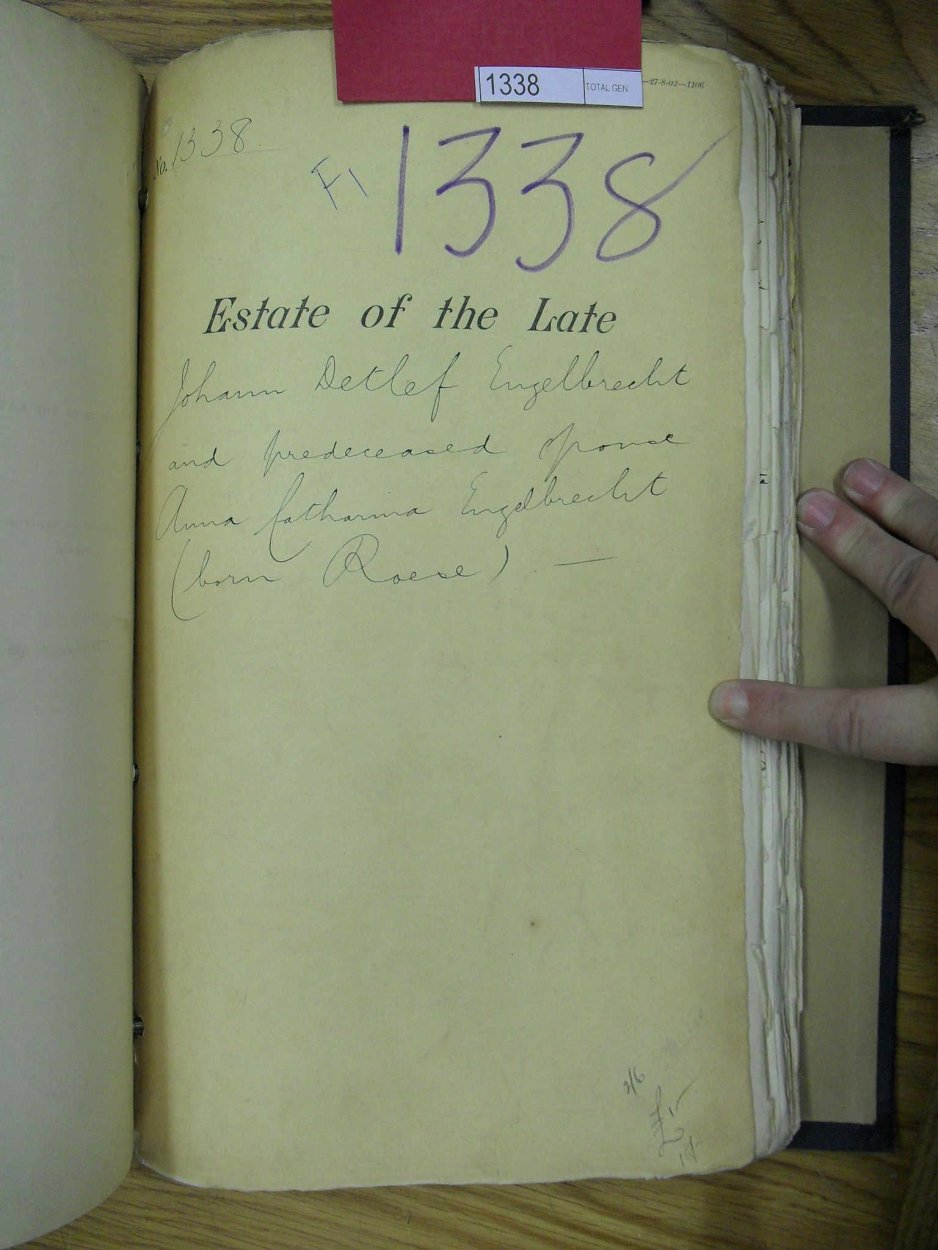 1338 TOTAL GEN
—27-8-02—1106
No. 1338.
F1 1338
Estate of the Late
Johann Detlef Engelbrecht
and predeceased spouse
Anna Catharina Engelbrecht
(born Roese). —
2/6
£1/-